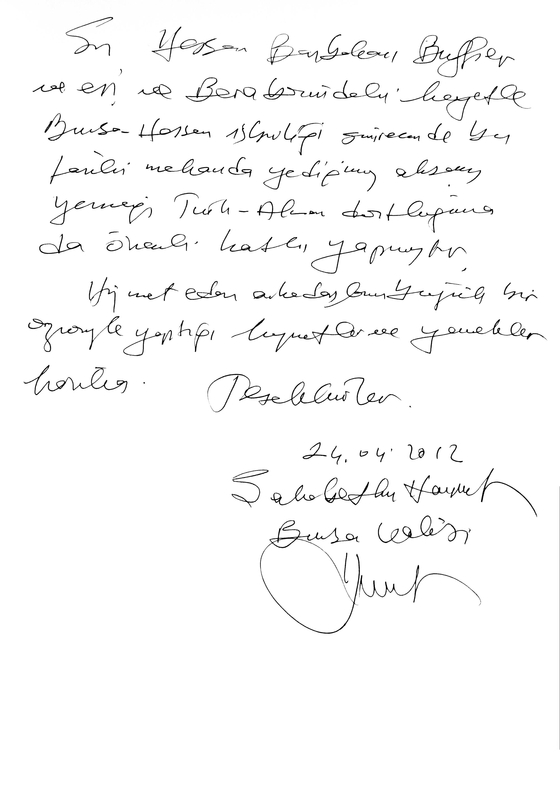 Sn Hessen Başbakanı Bouffier
ve eşi ve Beraberindeki heyetle
Bursa-Hessen işbirliği sürecinde bu
tarihi mekanda yediğimiz akşam
yemeği Türk-Alman dostluğuna
da önemli katkı yapmıştır.
Hizmet eden arkadaşların büyük bir
özveriyle yaptığı hizmetler ve yemekler
harika. Teşekkürler.
24.04.2012
Şahabettin Harput
Bursa Valisi